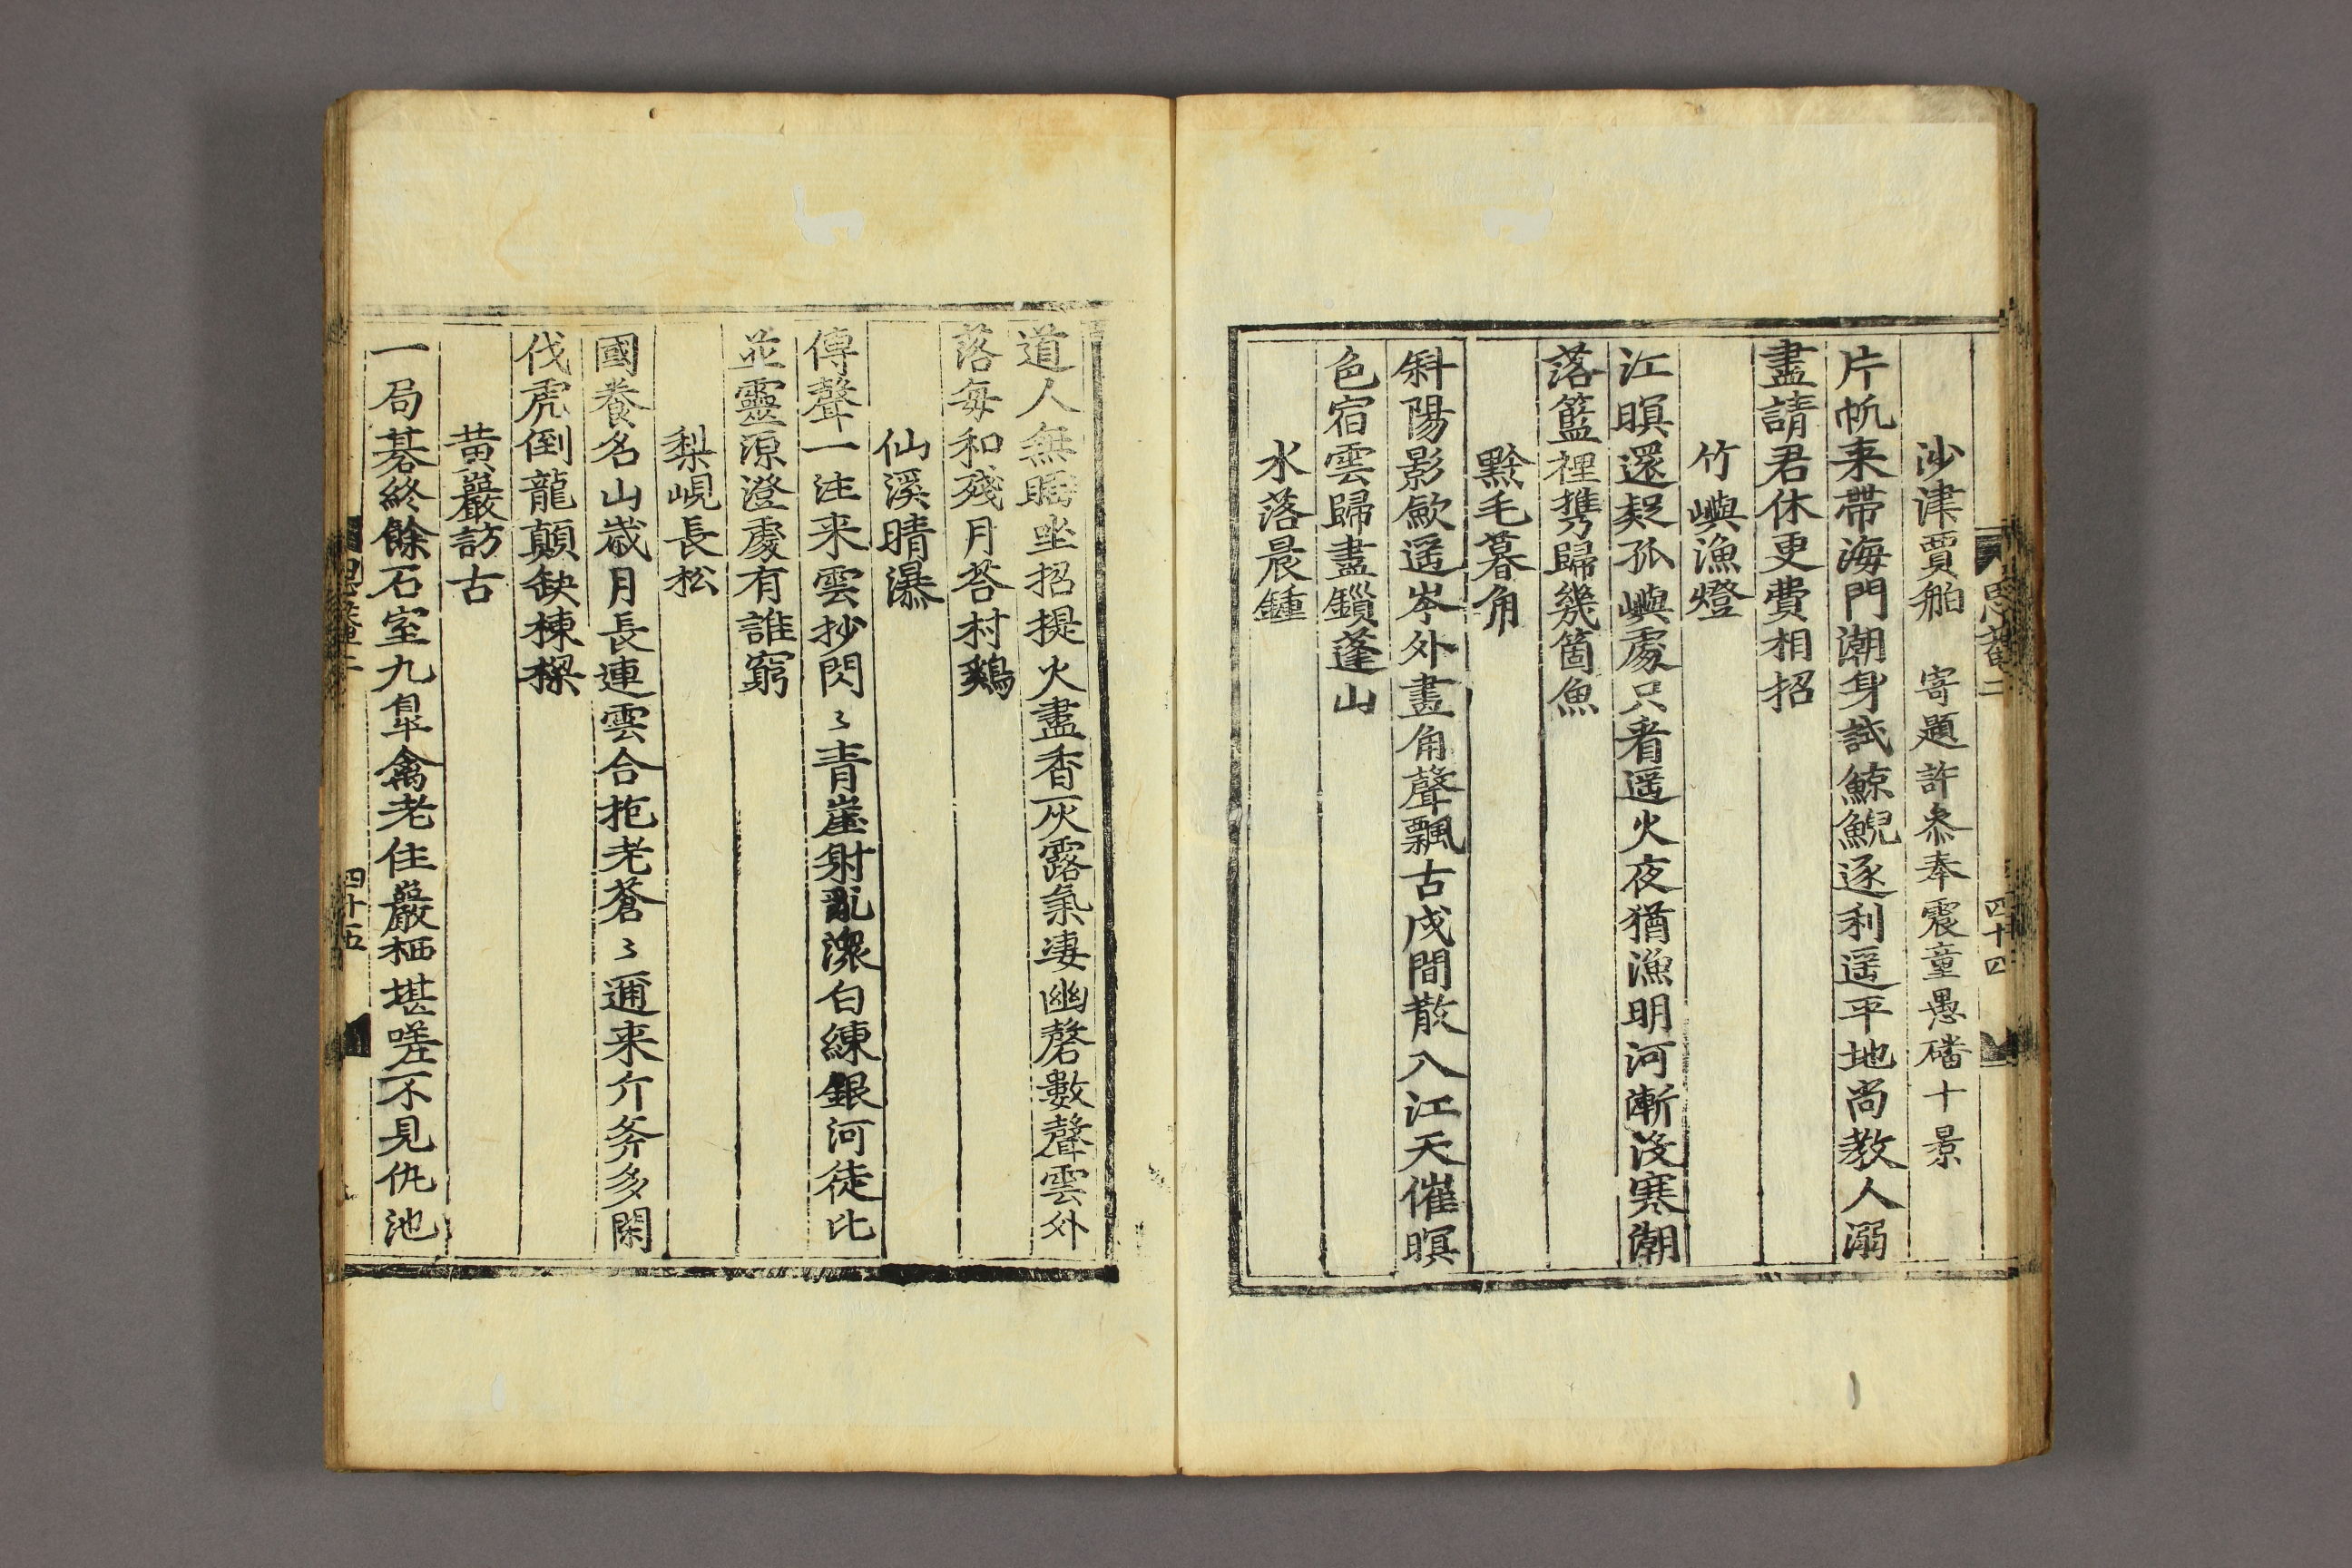 沙津賈舶 寄題許叅奉震童愚磻十景
片帆来帶海門潮身試鯨鯢逐利遥平地尚教人溺
盡請君休更費相招
竹嶼漁燈
江暝還疑孤嶼處只看遥火夜猶漁明河漸沒寒潮
落籃裡携歸幾箇魚
黔毛暮角
斜陽影歛遥岑外畫角聲飄古戍間散入江天催暝
色宿雲歸盡鎖蓬山
水落晨鍾
四十四
道人無睡坐招提火盡香灰露氣凄幽磬數聲雲外
落每和殘月荅村鷄
仙溪晴瀑
傳聲一注来雲抄閃〻青崖射亂濴白練銀河徒比
並靈源澄處有誰窮
梨峴長松
國養名山嵗月長連雲合抱老蒼〻邇来斤斧多閑
伐虎倒龍顛缺棟樑
黄巖訪古
一局碁終餘石室九臯禽老住巖栖堪嗟不見仇池
四十五